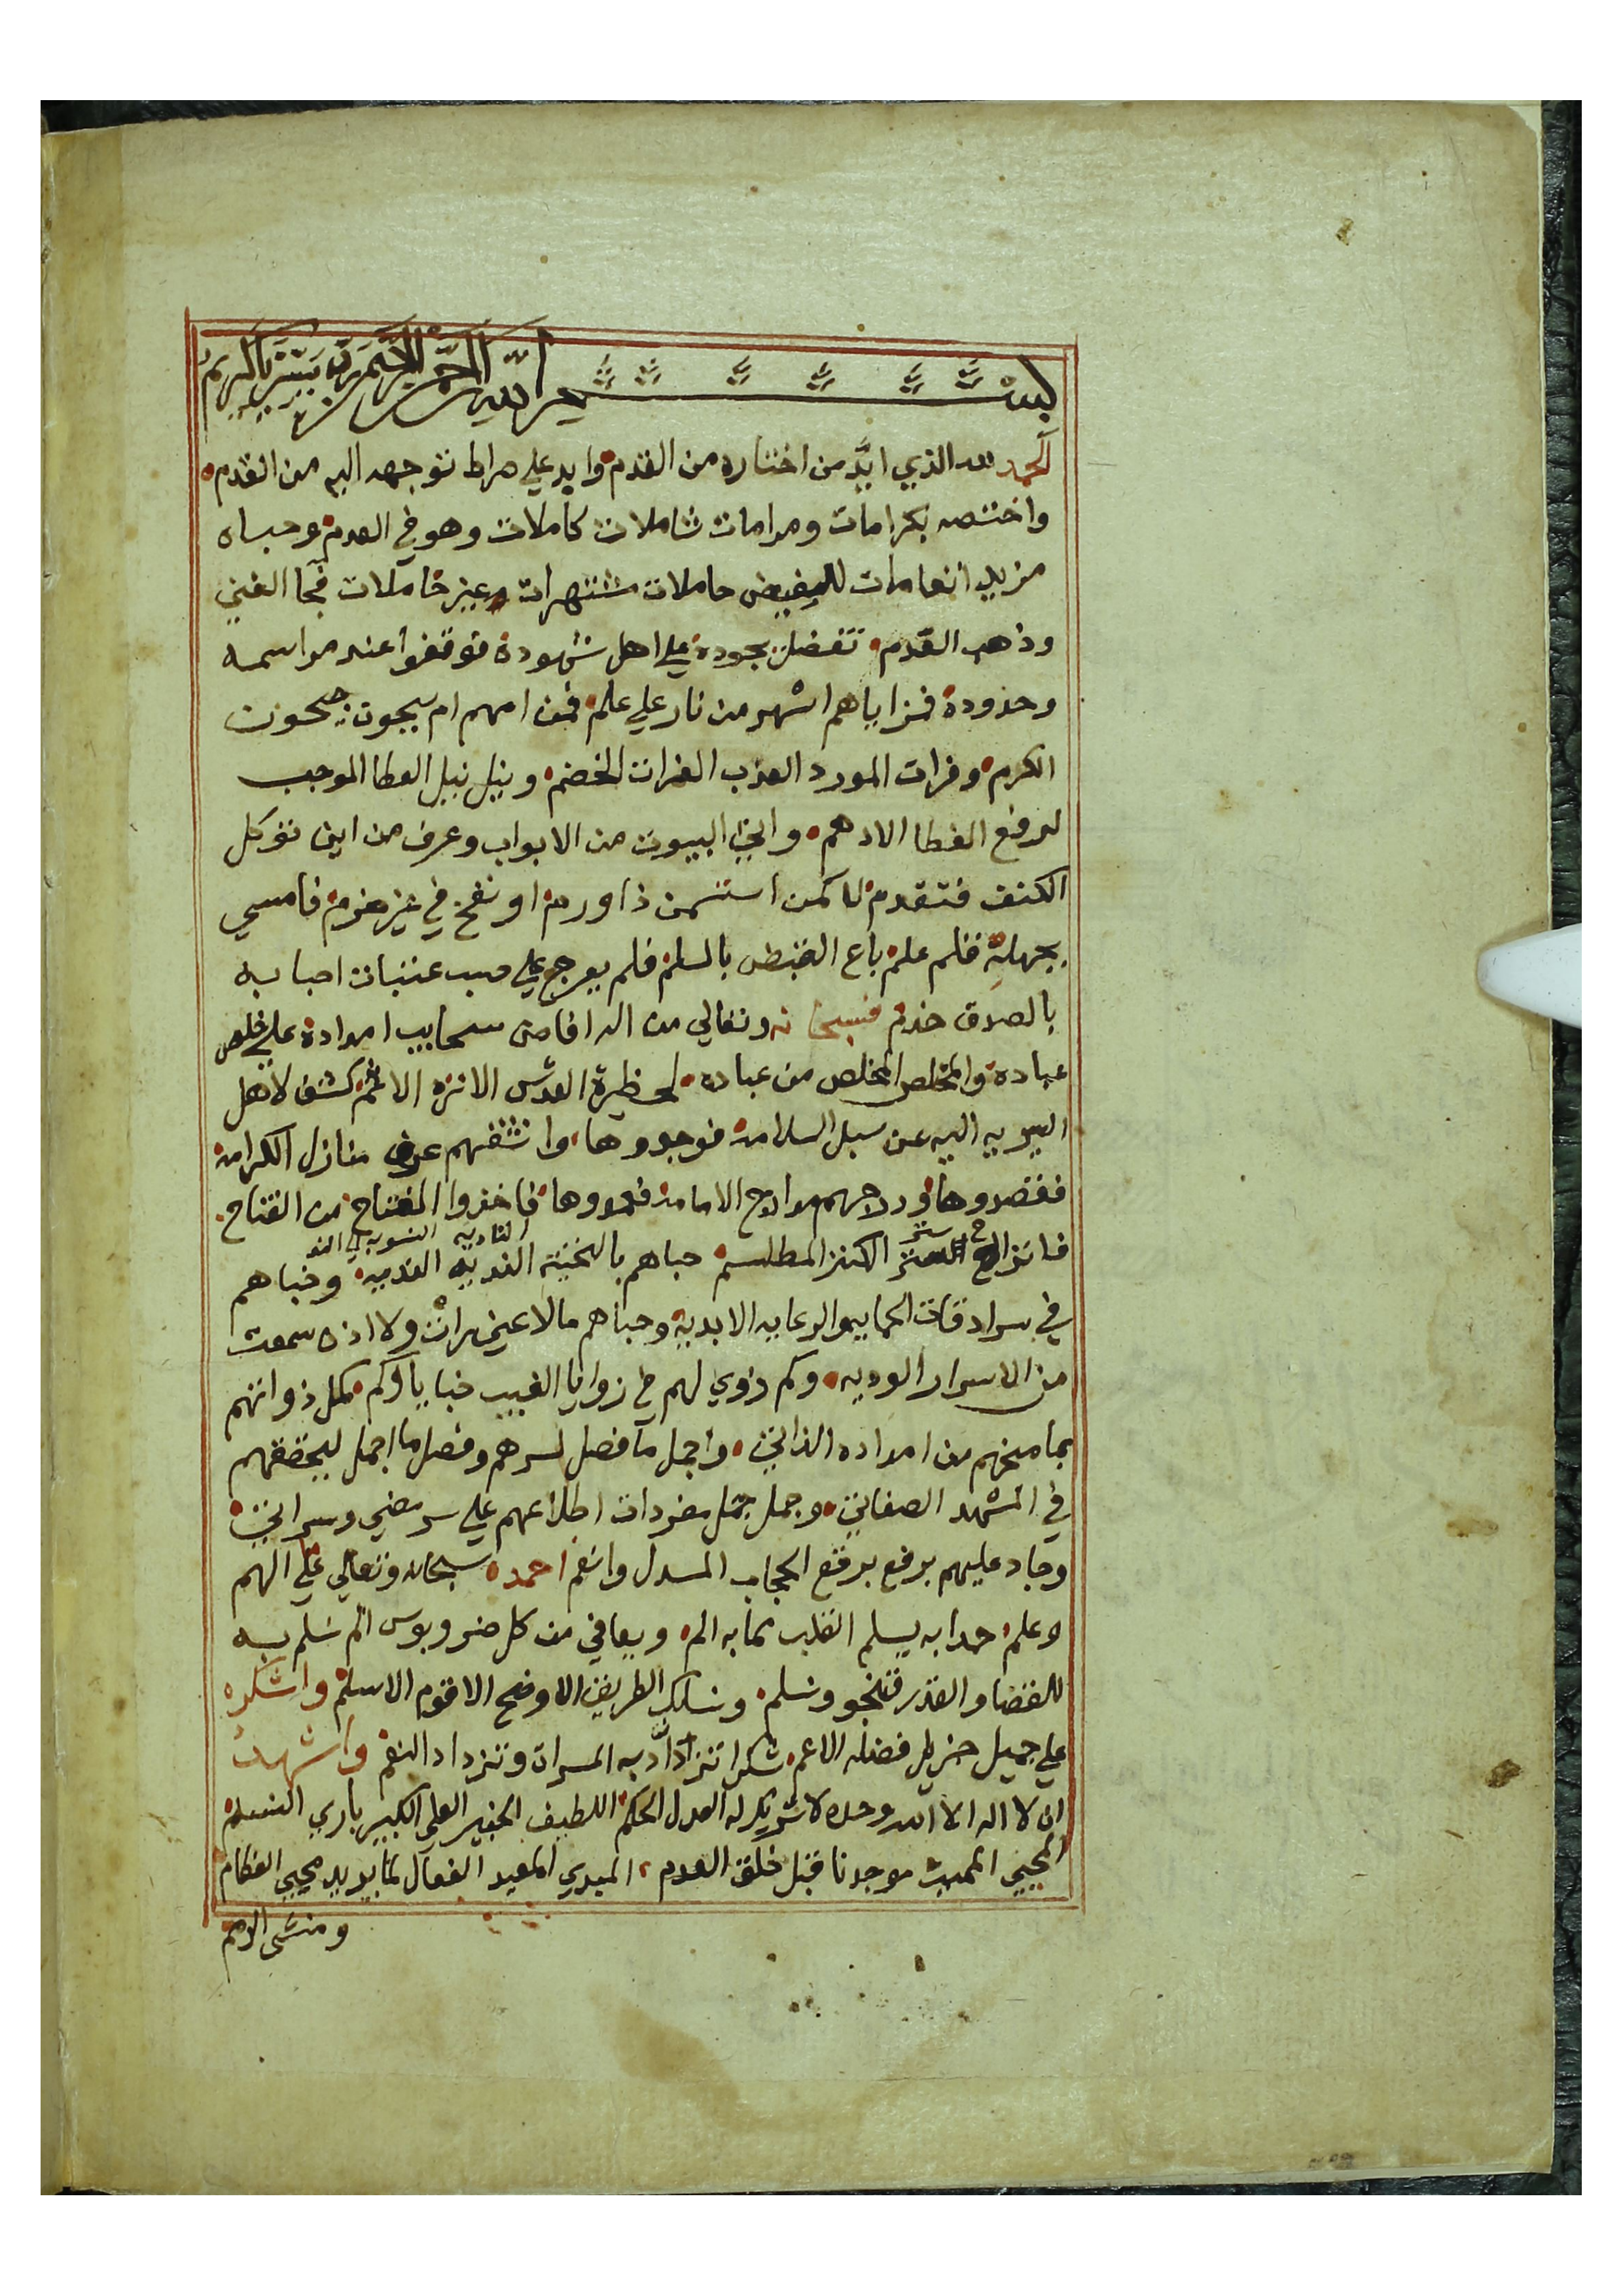 بسم الله الرحمن الرحيم رب يسر يا كريم
الحمد لله الذي ايَّد من اختاره من القدم وايد علي صراط توجهه اليه من القدم
واختصه بكرامات ومرامات شاملات كاملات وهو في العدم وحباه
مزيد انعامات للفيض حاملات مشتهرات وغير خاملات فجا الغني
وذهب العدم تفضل بجوده علي اهل شهوده فوقفوا عند مراسمه
وحدوده فمزاياهم اشهر من نار علي علم فمن امهم ام سيحون جيحون
الكرم وفرات المورد العذب الفرات الخضم ونيل نيل العطا الموجب
لرفع الغطا الادهم واتي البيوت من الابواب وعرف من اين تؤكل
الكتف فتقدم لا كمن استسمن ذا ورم او نفخ في غير ضرم فامسي
بجهله فلم علم باع الغبطه بالسلم فلم يعرج علي عتبات احبابه
بالصدق خدم فسبحانه وتعالي من اله افاض سحايب امداده علي خلص
عباده والمخلص المخلص من عباده لحظيرة القدس الانزه الاعم كشف لاهل
السير به اليه عن سبل السلامه فوجدوها وانشقهم عرف منازل الكرامه
فقصدوها ودرجهم مدارج الامامه فاخذوا المفتاح من الفتاح
فانزاح ستر الكنز المطلسم حباهم بالمحنة القدسيه وخباهم
في سرادقات الحمايه والرعايه الابديه وحباهم ما لا عين رات ولا اذن سمعت
من الاسرار الوديه وكم زوي لهم في زوايا الغيب خبايا وكم كمل ذواتهم
بما منحهم من امداده الذاتي واجمل ما فصل لسرهم وفصل ما اجمل ليحققهم
في المشهد الصفاتي وجمل جمل مفردات اطلاعهم علي سر مضي وسر اتي
وجاد عليهم برفع برقع الحجاب المسدل وانعم احمده سبحانه وتعالي علي الهم
وعلم حمدا به يسلم القلب مما به الم ويعافي من كل ضر وبوس الم نسلم به
للقضا والقدر فننجو ونسلم ونسلك الطريق الاوضح الاقوم الاسلم واشكره
علي جميل جزيل فضله الاعم شكرا تتزايد به المسرات وتزداد النعم واشهد
ان لا اله الا الله وحده لا شريك له العدل الحكم اللطيف الخبير العلي الكبير باري النسم
المحيي المميت موجدنا قبل خلق العدم المبدي المعيد الفعال لما يريد محيي العظام
ومنشي الامم